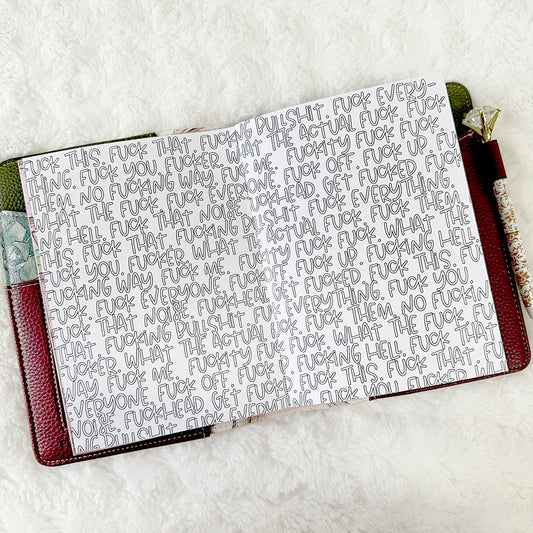 FUCK THIS. FUCK THAT. FUCKING BULLSHIT. FUCK EVERY-
THING. FUCK YOU, FUCKER. WHAT THE ACTUAL FUCK. FUCK
THEM. NO FUCKING WAY. FUCK ME. FUCKITY FUCK FUCK.
WHAT THE FUCK. FUCK EVERYONE. FUCK OFF. FUCK UP. FUCK-
ING HELL. FUCK THAT NOISE. FUCKHEAD. GET FUCKED.
THIS. FUCK THAT. FUCKING BULLSHIT. FUCK EVERYTHING.
FUCK YOU, FUCKER. WHAT THE ACTUAL FUCK. FUCK
FUCKING WAY. FUCK ME. FUCKITY FUCK FUCK. WHAT THE
FUCK. FUCK EVERYONE. FUCK OFF. FUCK UP. FUCKING HELL.
FUCK THAT NOISE. FUCKHEAD. GET FUCKED. FUCK THIS. FU
THAT. FUCKING BULLSHIT. FUCK EVERYTHING. FUCK YOU,
FUCKER. WHAT THE ACTUAL FUCK. FUCK THEM. NO FUCKIN
WAY. FUCK ME. FUCKITY FUCK FUCK. WHAT THE FUCK. FUCK
EVERYONE. FUCK OFF. FUCK UP. FUCKING HELL. FUCK THAT
NOISE. FUCKHEAD. GET FUCKED. FUCK THIS. FUCK THAT. FU
ING BULLSHIT. FUCK EVERYTHING. FUCK YOU, FUCKER. W